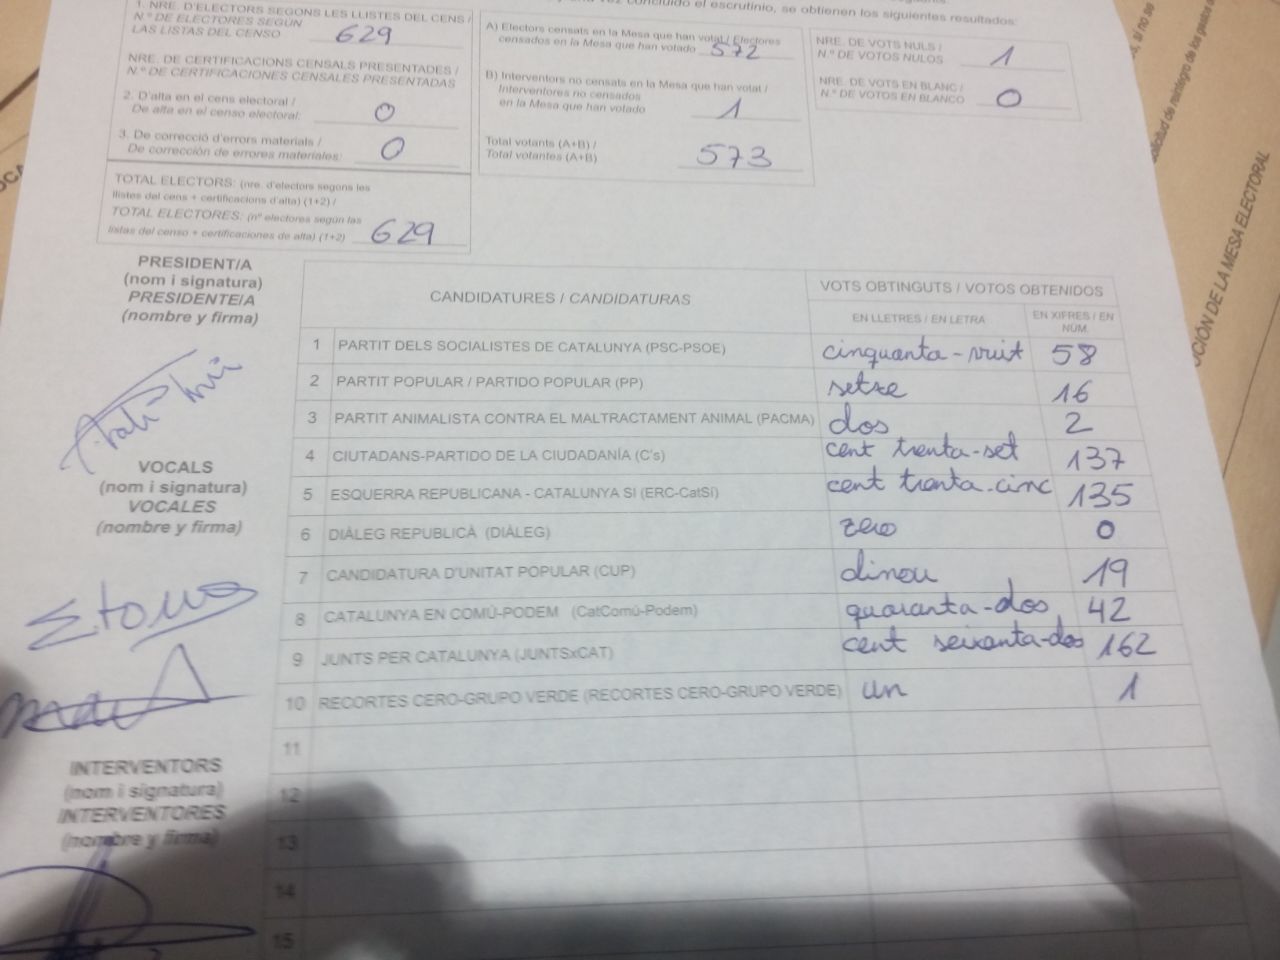 concluido el escrutinio, se obtienen los siguientes resultados:
1. NRE. D'ELECTORS SEGONS LES LLISTES DEL CENS /
N.º DE ELECTORES SEGÚN
LAS LISTAS DEL CENSO 629
NRE. DE CERTIFICACIONS CENSALS PRESENTADES /
N.º DE CERTIFICACIONES CENSALES PRESENTADAS
2. D'alta en el cens electoral /
De alta en el censo electoral: 0
3. De correcció d'errors materials /
De corrección de errores materiales: 0
TOTAL ELECTORS: (nre. d'electors segons les
llistes del cens + certificacions d'alta) (1+2) /
TOTAL ELECTORES: (nº electores según las
listas del censo + certificaciones de alta) (1+2) 629
A) Electors censats en la Mesa que han votat / Electores
censados en la Mesa que han votado 572
B) Interventors no censats en la Mesa que han votat /
Interventores no censados
en la Mesa que han votado 1
Total votants (A+B) /
Total votantes (A+B) 573
NRE. DE VOTS NULS /
N.º DE VOTOS NULOS 1
NRE. DE VOTS EN BLANC /
N.º DE VOTOS EN BLANCO 0
PRESIDENT/A
(nom i signatura)
PRESIDENTE/A
(nombre y firma)
VOCALS
(nom i signatura)
VOCALES
(nombre y firma)
INTERVENTORS
(nom i signatura)
INTERVENTORES
(nombre y firma)
CANDIDATURES / CANDIDATURAS
VOTS OBTINGUTS / VOTOS OBTENIDOS
EN LLETRES / EN LETRA
EN XIFRES / EN
NÚM.
1 PARTIT DELS SOCIALISTES DE CATALUNYA (PSC-PSOE) cinquanta-vuit 58
2 PARTIT POPULAR / PARTIDO POPULAR (PP) setze 16
3 PARTIT ANIMALISTA CONTRA EL MALTRACTAMENT ANIMAL (PACMA) dos 2
4 CIUTADANS-PARTIDO DE LA CIUDADANÍA (C's) cent trenta-set 137
5 ESQUERRA REPUBLICANA - CATALUNYA SI (ERC-CatSí) cent trenta-cinc 135
6 DIÀLEG REPUBLICÀ (DIÀLEG) zero 0
7 CANDIDATURA D'UNITAT POPULAR (CUP) dinou 19
8 CATALUNYA EN COMÚ-PODEM (CatComú-Podem) quaranta-dos 42
9 JUNTS PER CATALUNYA (JUNTSxCAT) cent seixanta-dos 162
10 RECORTES CERO-GRUPO VERDE (RECORTES CERO-GRUPO VERDE) un 1
11
12
13
14
15
, si no se
solicitud de reintegro de los gastos
CIÓN DE LA MESA ELECTORAL